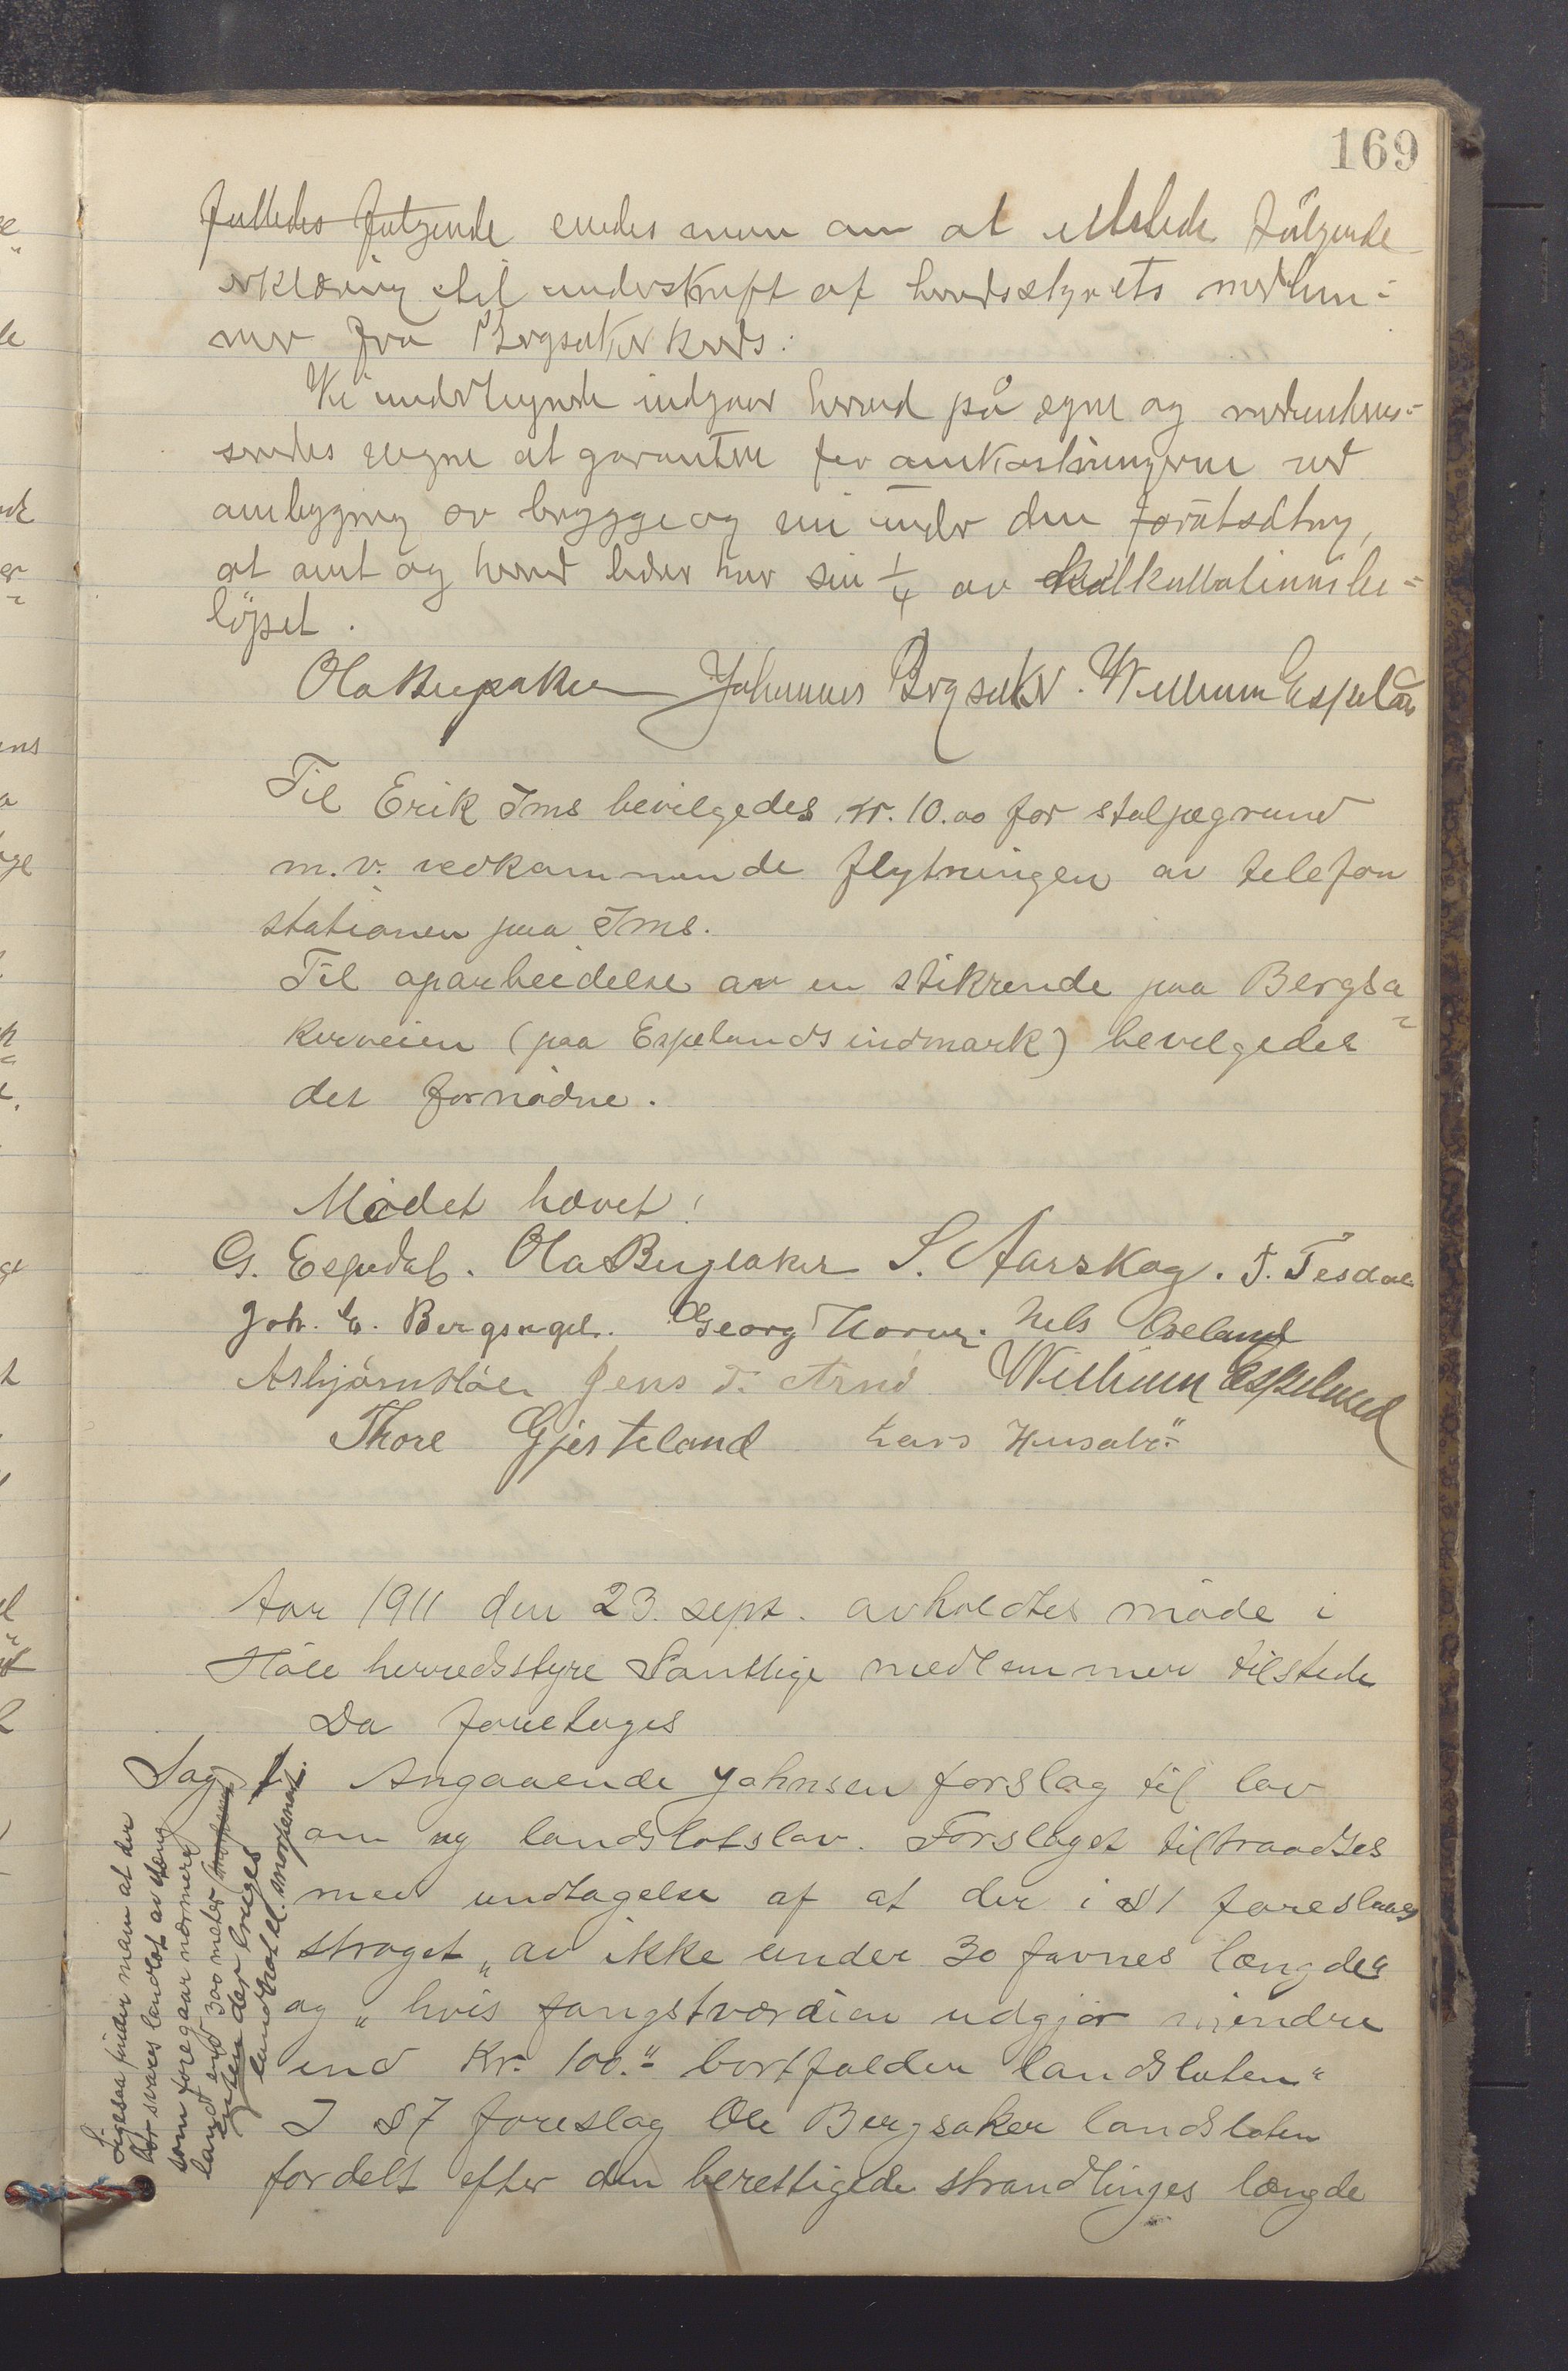 169
fattedes følgende enedes man om at utstede følgende
erklæring til underskrift af herredsstyrets medlem=
mer fra Bergsaker kreds:
Vi undertegnede indgaar herved på egne og medinteres=
seredes vegne at garantere for omkostningerne ved
ombygning av brygge og vei under den forutsætning,
at amt og herred leder hver sin 1/4 av kalkulationsbe=
løpet.
Ola Bergsaker Johannes Bergsaker. William Espeland
Til Erik Ims bevilgedes kr. 10.00 for stolpegrund
m.v. vedkommende flytningen av telefon
stationen paa Ims.
Til oparbeidelse av en stikrende paa Bergsa=
kerveien (paa Espelands indmark) bevilgedes
det fornødne.
Mødet hævet!
G. Espedal. Ola Bergsaker S. Aarskog. T. Tesdal
Joh. E. Bergsagel. Georg Norum. Nels Eveland
Asbjørn Høle Jens T. Arnd William Espeland
Thore Gjesteland Lars Husabø
Aar 1911 den 23. sept. avholdtes møde i
Høle herredsstyre Samtlige medlemmer tilstede
Da foretoges
Sag 1. Angaaende Johnsen forslag til lov
om ny landslotslov. Forslaget tiltraadtes
med undtagelse af at der i § 1 foreslaaes
strøget „av ikke under 30 favnes længde"
og „hvis fangstværdien udgjør mindre
end Kr. 100." bortfalder landsloten"
I § 7 foreslog Ole Bergsaker landsloten
fordelt efter den berettigede strandlinjes længde
Ligesaa finder man at der
bør svares landslot av stæng
som foregaar nærmere
land end 300 meter
enten der bruges
landhal el. snørpenot.